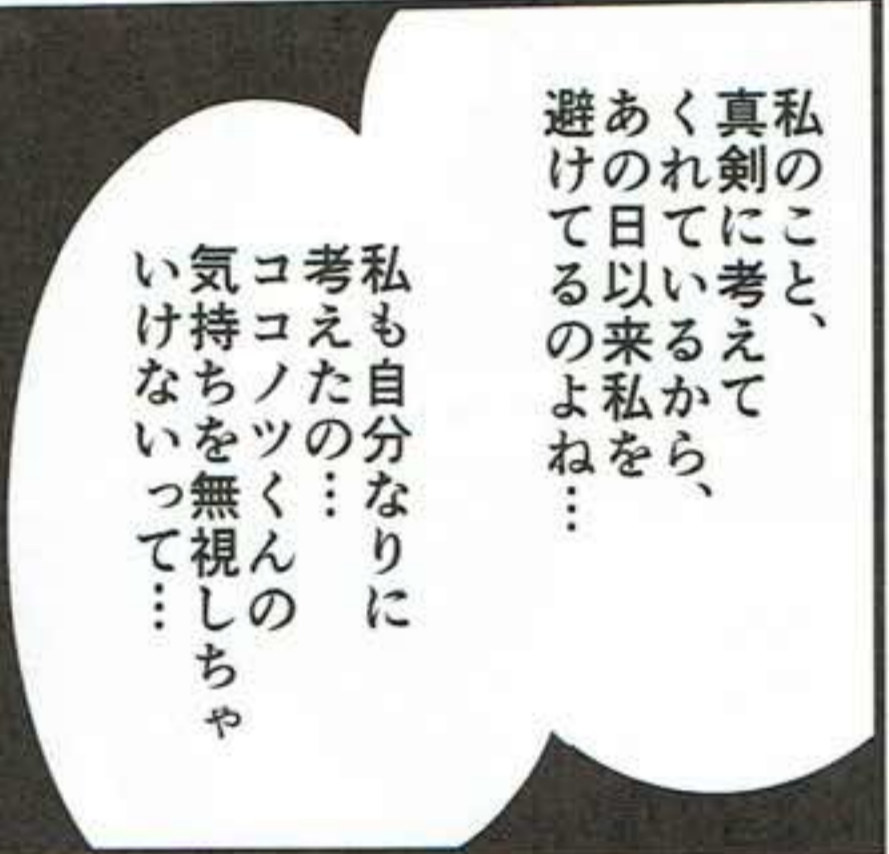 私のこと、
真剣に考えて
くれているから、
あの日以来私を
避けてるのよね…
私も自分なりに
考えたの…
ココノツくんの
気持ちを無視しちゃ
いけないって…